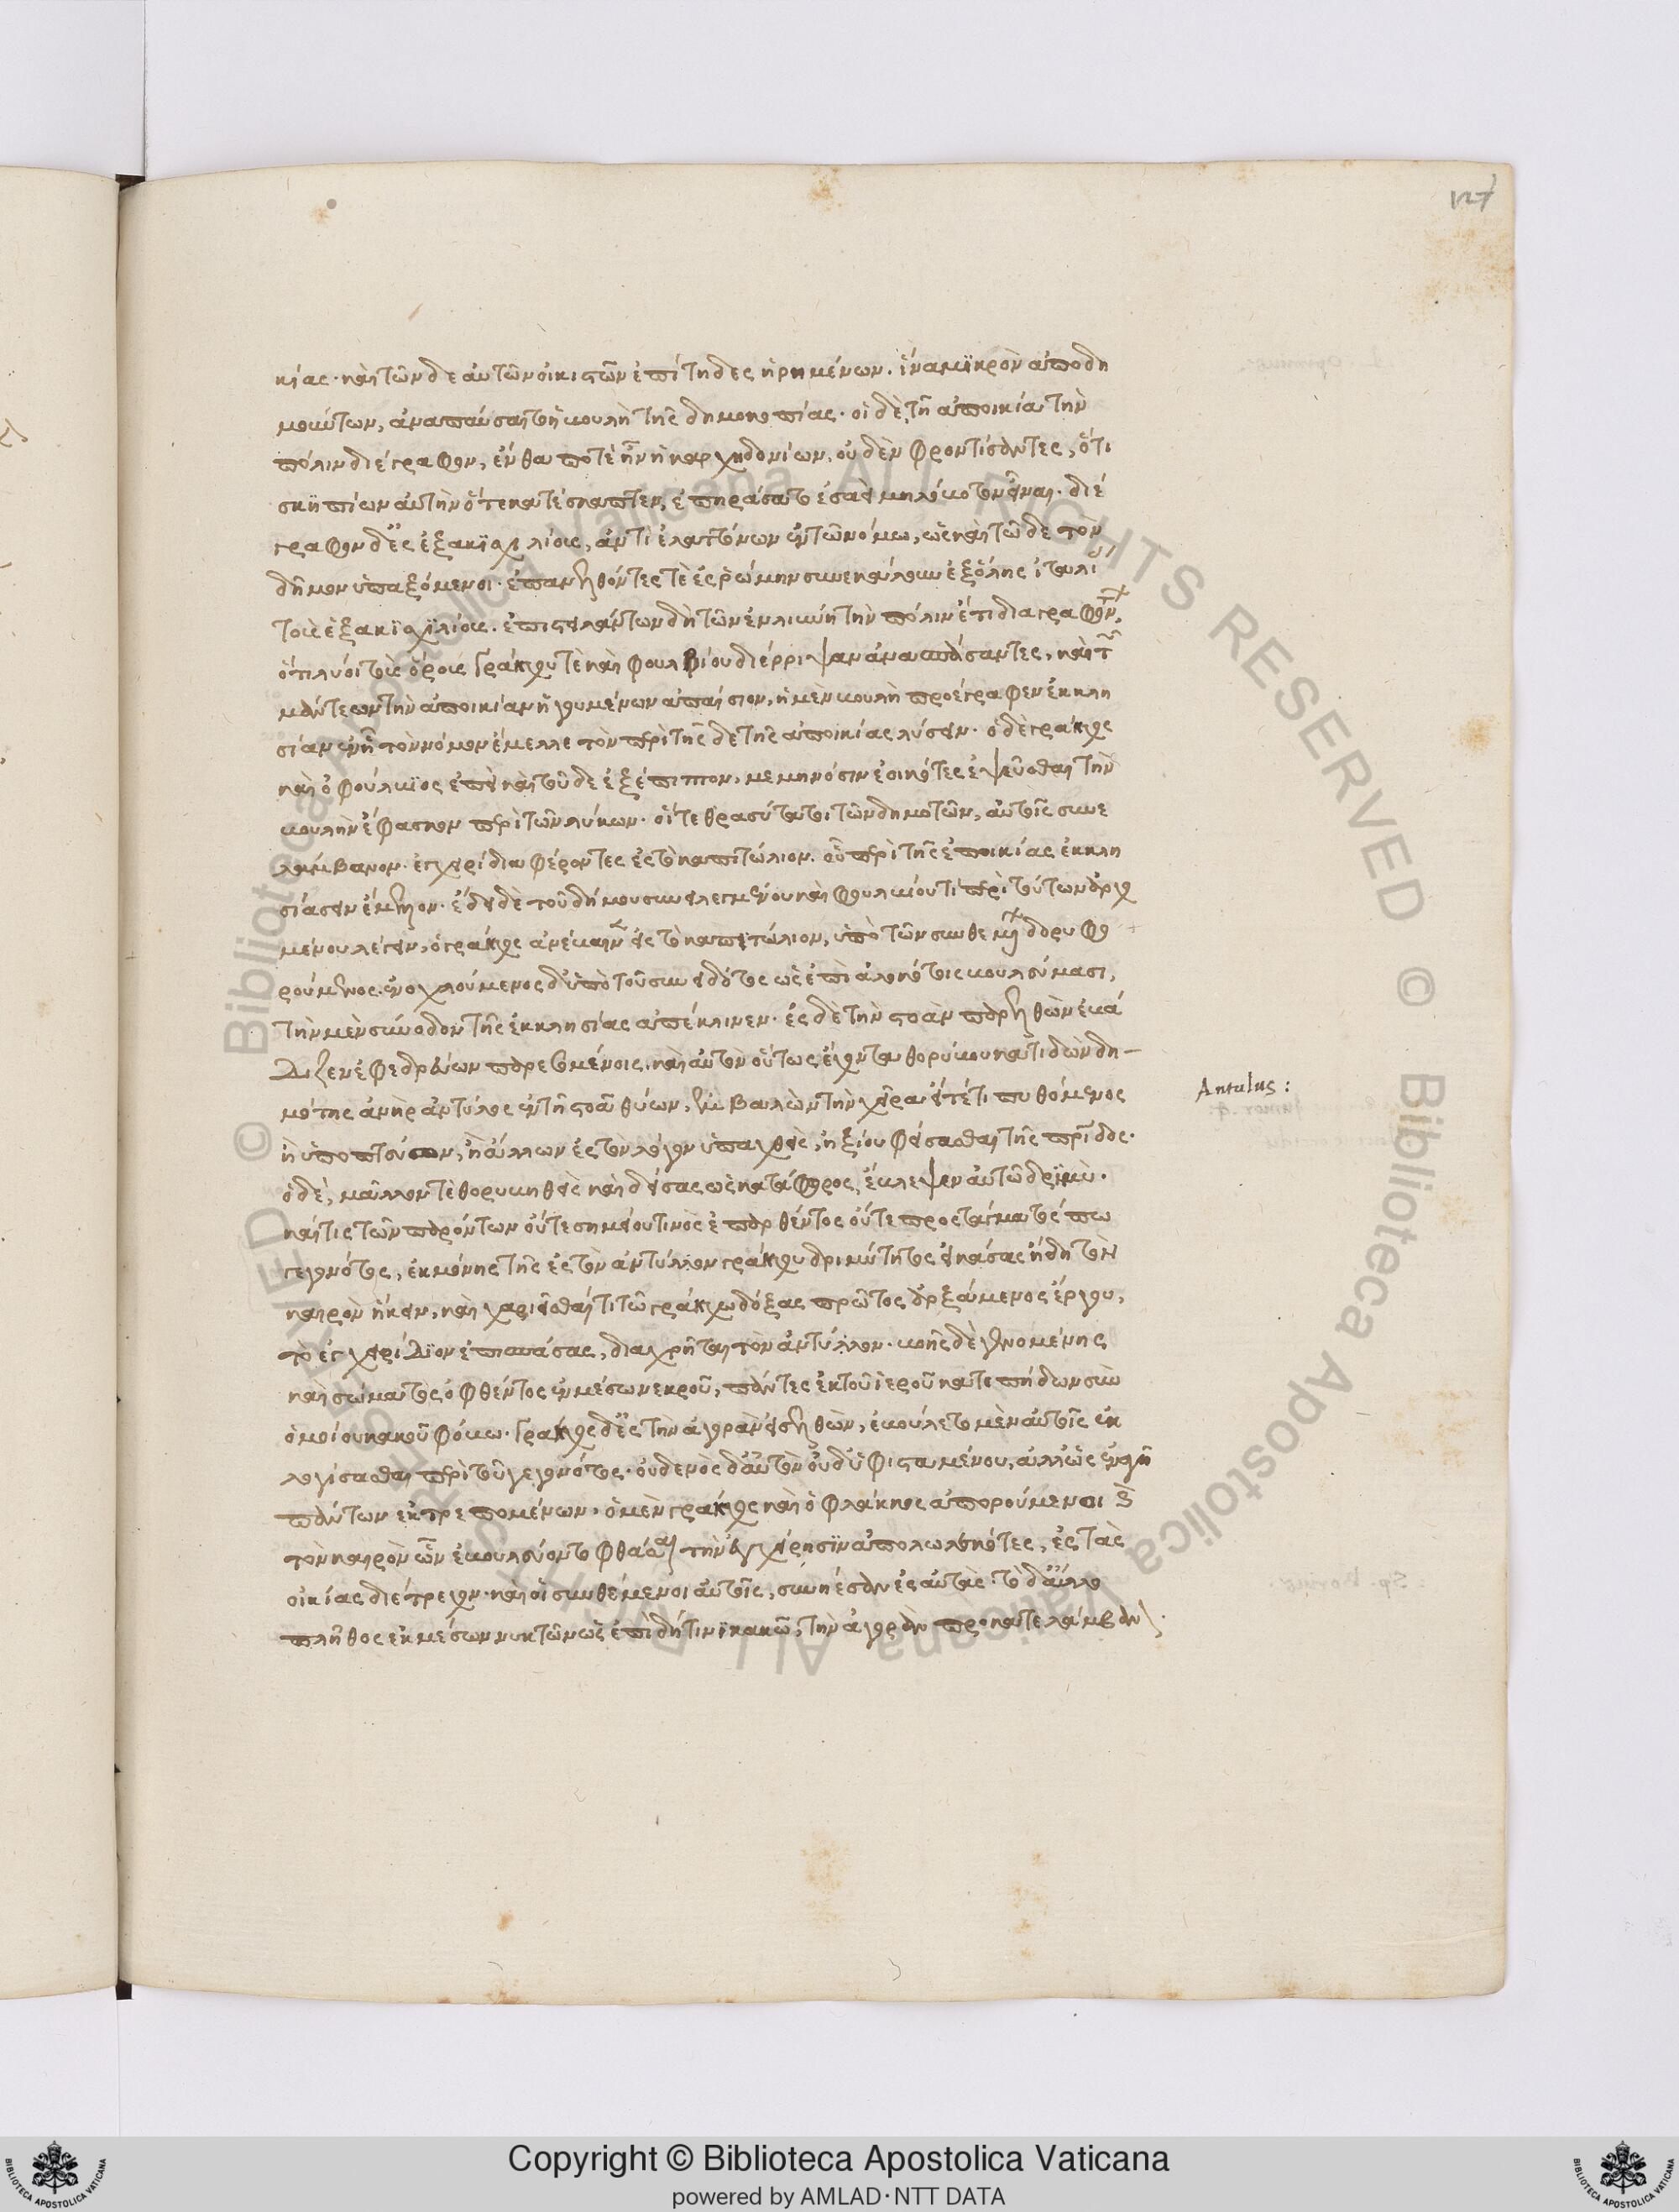 κίας· καὶ τῶνδε αὐτῶν οἰκιστῶν ἐπίτηδες ἡρημένων. ἵνα μϊκρὸν ἀποδη
μούντων, ἀναπαύσαιτο ἡ βουλὴ τῆς δημοκοπίας. οἱ δὲ τῆ ἀποικία τὴν
πόλιν διέγραφον, ἔνθα ποτὲ ἦν ἡ καρχηδονίων, οὐδὲν φροντίσαντες, ὅτι
σκηπίων αὐτὴν ὅτε κατέσκαπτεν, ἐπηράσατο ἐσαεὶ μηλόβοτον εἶναι. διέ
γραφον δ' ἐς ἑξακϊσχιλίους, ἀντὶ ἐλαττόνων ἐν τῶ νόμω, ὡς καὶ τῶδε τὸν
δῆμον ὑπαξόμενοι. ἐπανελθόντες τὲ ἐς ῥώμην συνεκάλουν ἐξ ὅλης ἰταλί
τοὺς ἑξακϊσχϊλίους. ἐπιστειλάντων δὴ τῶν ἐν λιβύη τὴν πόλιν ἔτι διαγραφόντ,
ὅτι λύκοι τοὺς ὅρους Γράκχου τὲ καὶ φουλβίου διέρριψαν ἀνασπάσαντες, καὶ τῶν
μάντεων τὴν ἀποικίαν ἡγουμένων ἀπαίσιον, ἡ μὲν βουλὴ προέγραφεν ἐκκλη
σίαν ἐν ἧ τὸν νόμον ἔμελλε τὸν περὶ τῆς δε τῆς ἀποικίας λύσειν. ὁ δὲ γράκχος
καὶ ὁ φούλβϊος ἐπεὶ καὶ τοῦδε ἐξέπιπτον, μεμηνόσιν ἐοικότες ἐψεῦσθαι τὴν
βουλὴν ἔφασκον περὶ τῶν λύκων. οἵ τε θρασύτατοι τῶν δημοτῶν, αὐτοῖς συνε
λάμβανον. ἐγχειρίδια φέροντες ἐς τὸ καπιτώλιον. οὗ περὶ τῆς ἐποικίας ἐκκλη
σιάσειν ἔμελλον. ἤδη δὲ τοῦ δήμου συνειλεγμένου καὶ φουλβίου τι περὶ τούτων ἀρχο
μένου λέγειν, ὁ γράκχος ἀνέβαινεν ἐς τὸ καπιτώλιον, ὑπὸ τῶν συνθεμένων δορυφο
ρούμενος. ἐνοχλούμενος δ' ὑπὸ τοῦ συνειδότος ὡς ἐπὶ ἀλοκότοις βουλεύμασι,
τὴν μὲν σύνοδον τῆς ἐκκλησίας ἀπέκλινεν. ἐς δὲ τὴν στοὰν παρελθὼν ἐβά
διζεν ἐφεδρεύων παρεσομένοις. καὶ αὐτὸν οὕτως ἔχοντα θορύβου κατιδὼν δη-
μότης ἀνὴρ ἀντύλος ἐν τῆ στοᾶ θύων, ἐμβαλὼν τὴν χεῖρα εἴτέ τι πυθόμενος
ἢ ὑποπτεύων, ἢ ἄλλων ἐς τὸν λόγον ὑπαχθεὶς, ἠξίου φείσασθαι τῆς πατρίδος.
ὁ δὲ, μᾶλλόν τὲ θορυβηθεὶς καὶ δείσας ὡς κατάφορος, ἔβλεψεν αὐτῶ δρϊμὺ.
καί τις τῶν παρόντων οὔτε σημείου τινὸς ἐπαρθέντος οὔτε προστάγματός πω
γεγονότος, ἐκ μόνης τῆς ἐς τὸν ἀντύλλον γράκχου δριμύτητος εἰκάσας ἤδη τὸν
καιρὸν ἥκειν, καὶ χαριεῖσθαί τι τῶ γράκχω δόξας πρῶτος ἀρξάμενος ἔργου,
τὸ ἐγχειρίδϊον ἐπισπάσας, διαχρῆται τὸν ἀντύλλον. βοῆς δὲ γενομένης
καὶ σώματος ὀφθέντος ἐν μέσω νεκροῦ, πάντες ἐκ τοῦ ἱεροῦ κατεπήδων σὺν
ὁμοίου κακοῦ φόβω. Γράκχος δ' ἐς τὴν ἀγορὰν ἐσελθὼν, ἐβούλετο μὲν αὐτοῖς ἐκ
λογίσασθαι περὶ τοῦ γεγονότος. οὐδενὸς δ' αὐτὸν οὐδ' ὑφισταμένου, ἀλλ' ὡς ἐναγῆ
πάντων ἐκτρεπομένων. ὁ μὲν γράκχος καὶ ὁ φλάκκος ἀπορούμενοι καὶ
τὸν καιρὸν ὧν ἐβουλεύοντο φθάσαι τὴν ἐγχείρησϊν ἀπολωλεκότες, ἐς τὰς
οἰκίας διέτρεχον. καὶ οἱ συνθέμενοι αὐτοῖς, συνῄεσαν ἐς αὐτὰς. τὸ δ' ἄλλο
πλῆθος ἐκ μέσων νυκτῶν ὡς ἐπὶ δή τινϊ κακῶ, τὴν ἀγορὰν προκατελάμβαν.
Antulus:
127
Copyright © Biblioteca Apostolica Vaticana
powered by AMLAD·NTT DATA